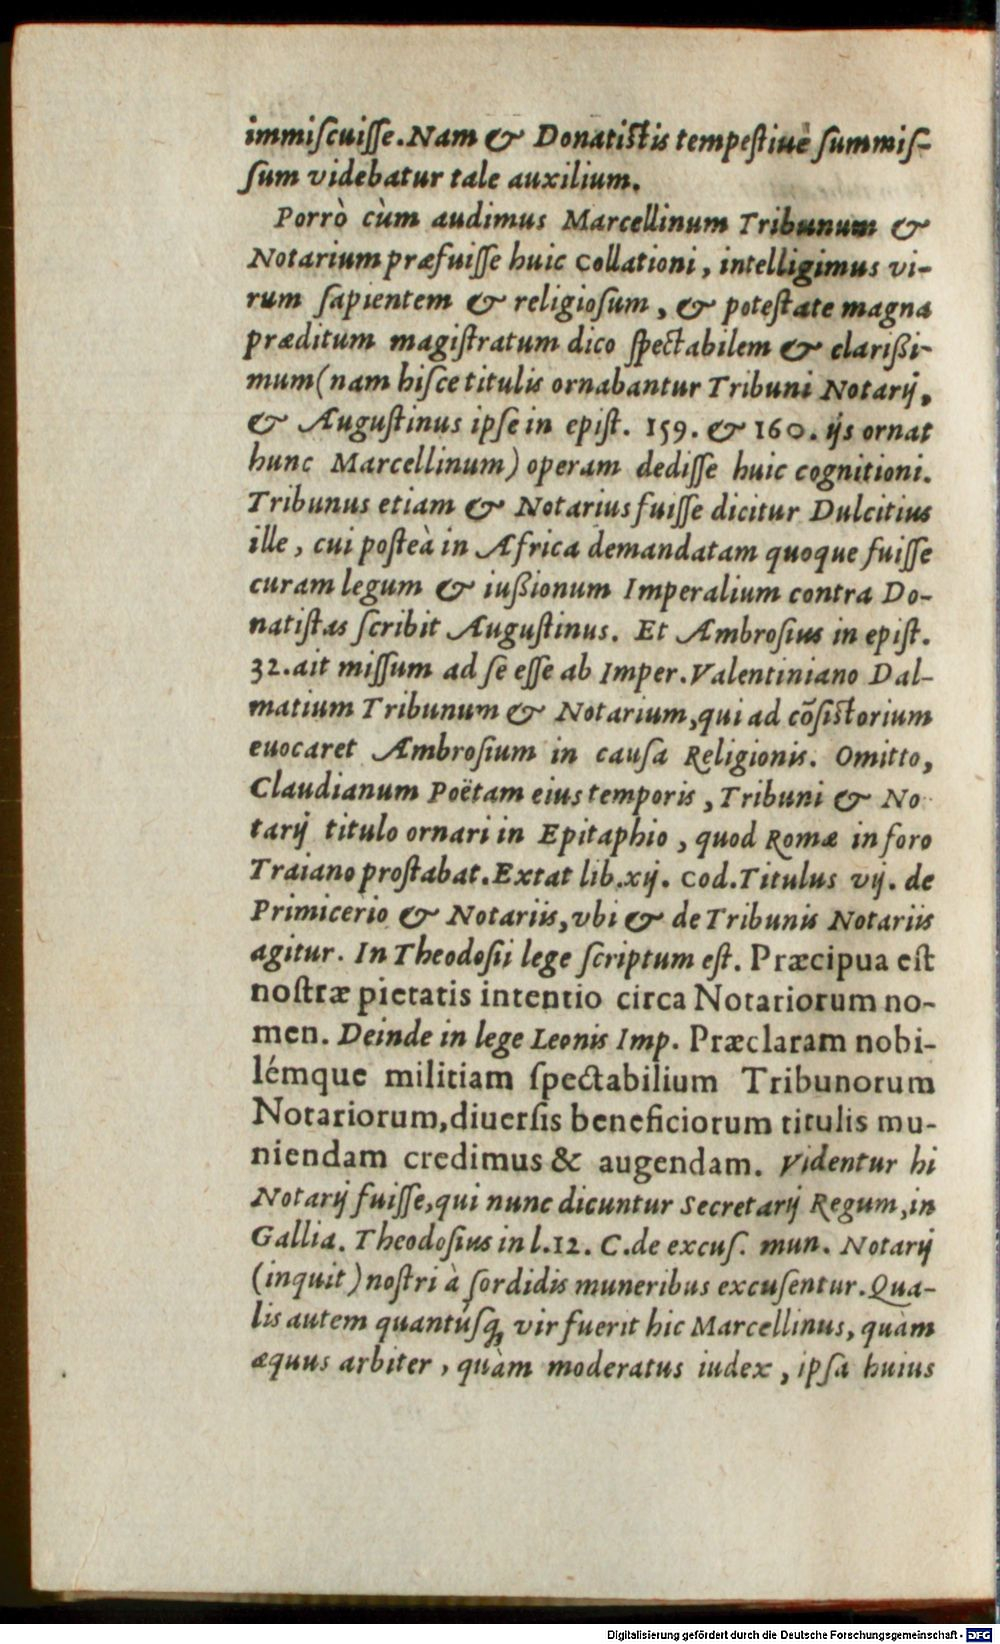 immiſcuiſſe. Nam & Donatiſtis tempeſtiuè ſummiſ-
ſum videbatur tale auxilium.
Porrò cùm audimus Marcellinum Tribunum &
Notarium præfuiſſe huic Collationi, intelligimus vi-
rum ſapientem & religioſum, & poteſtate magna
præditum magiſtratum dico ſpectabilem & clarißi-
mum (nam hiſce titulis ornabantur Tribuni Notarij,
& Auguſtinus ipſe in epiſt. 159. & 160. ijs ornat
hunc Marcellinum) operam dediſſe huic cognitioni.
Tribunus etiam & Notarius fuiſſe dicitur Dulcitius
ille, cui poſteà in Africa demandatam quoque fuiſſe
curam legum & iußionum Imperalium contra Do-
natiſtas ſcribit Auguſtinus. Et Ambroſius in epiſt.
32. ait miſſum ad ſe eſſe ab Imper. Valentiniano Dal-
matium Tribunum & Notarium, qui ad cõſiſtorium
euocaret Ambroſium in cauſa Religionis. Omitto,
Claudianum Poëtam eius temporis, Tribuni & No
tarij titulo ornari in Epitaphio, quod Romæ in foro
Traiano proſtabat. Extat lib. xij. Cod. Titulus vij. de
Primicerio & Notariis, vbi & de Tribunis Notariis
agitur. In Theodoſii lege ſcriptum eſt. Præcipua eſt
noſtræ pietatis intentio circa Notariorum no-
men. Deinde in lege Leonis Imp. Præclaram nobi-
lémque militiam ſpectabilium Tribunorum
Notariorum, diuerſis beneficiorum titulis mu-
niendam credimus & augendam. Videntur hi
Notarij fuiſſe, qui nunc dicuntur Secretarij Regum, in
Gallia. Theodoſius in l. 12. C. de excuſ. mun. Notarij
(inquit) noſtri à ſordidis muneribus excuſentur. Qua-
lis autem quantúſq; vir fuerit hic Marcellinus, quàm
æquus arbiter, quàm moderatus iudex, ipſa huius
Digitalisierung gefördert durch die Deutsche Forschungsgemeinschaft - DFG